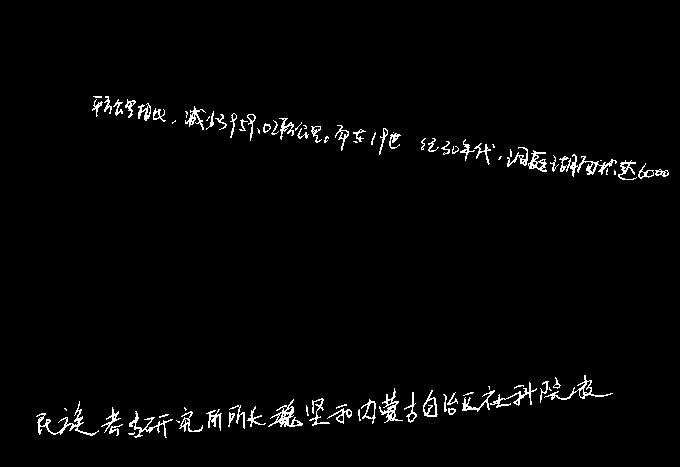 平方公里相比，减少3959.02平方公里。而在19世纪30年代，洞庭湖面积达6000
民族考古研究所所长魏坚和内蒙古自治区社科院